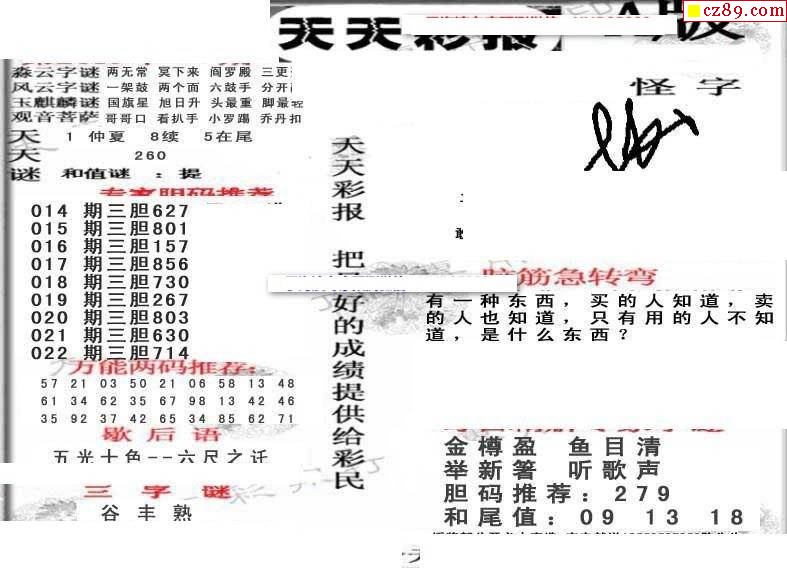 天天彩报
cz89.com
森云字谜 两无常 冥下来 阎罗殿 三更
风云字谜 一架鼓 两个面 六鼓手 分开
玉麒麟谜 国旗星 旭日升 头最重 脚最轻
观音菩萨 哥哥口 看扒手 小罗踢 乔丹扣
天 1 仲夏 8续 5在尾
天 260
谜 和值谜 ：提
专家胆码推荐
014 期三胆627
015 期三胆801
016 期三胆157
017 期三胆856
018 期三胆730
019 期三胆267
020 期三胆803
021 期三胆630
022 期三胆714
万能两码推荐:
57 21 03 50 21 06 58 13 48
61 34 62 35 67 98 13 42 46
35 92 37 42 65 34 85 62 71
歇后语
五光十色--六尺之讬
三字谜
谷丰熟
天天彩报 把最好的成绩提供给彩民
怪字
脑筋急转弯
有一种东西，买的人知道，卖
的人也知道，只有用的人不知
道，是什么东西？
金樽盈 鱼目清
举新箸 听歌声
胆码推荐：279
和尾值：09 13 18